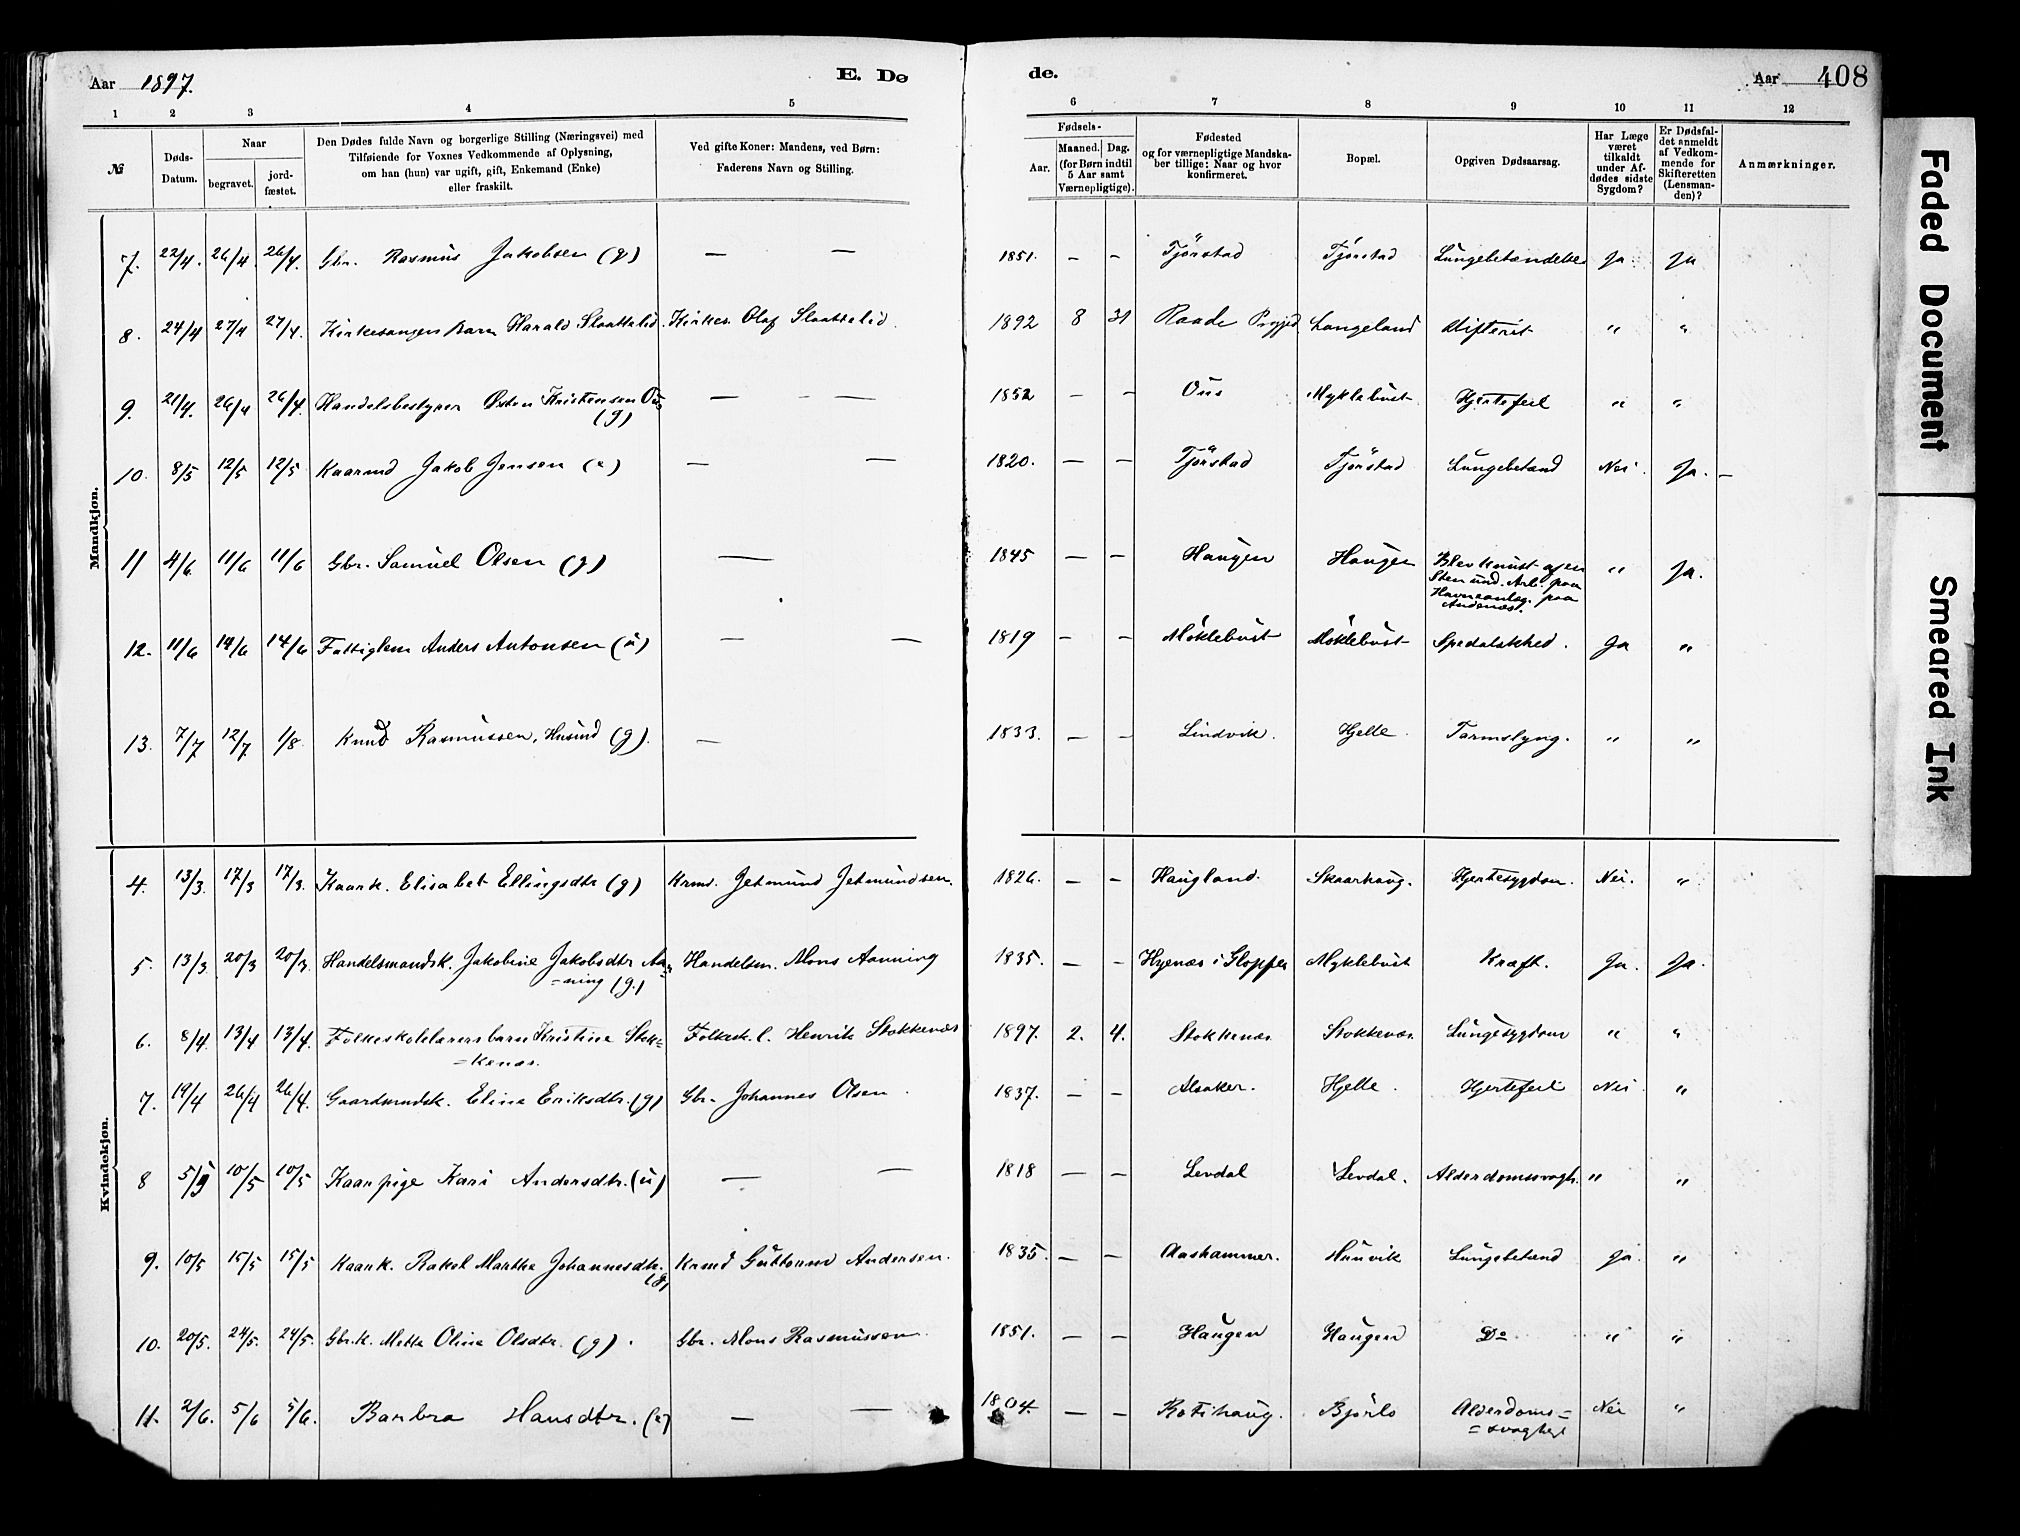 Aar 1897.
E. Dø
de.
Aar
408
1 2 3 4 5 6 7 8 9 10 11 12
№
Døds-Datum.
Naar
begravet.
jord-fæstet.
Den Dødes fulde Navn og borgerlige Stilling (Næringsvei) med
Tilføiende for Voxnes Vedkommende af Oplysning,
om han (hun) var ugift, gift, Enkemand (Enke)
eller fraskilt.
Ved gifte Koner: Mandens, ved Børn:
Faderens Navn og Stilling.
Fødsels-
Aar.
Maaned. Dag.
(for Børn indtil
5 Aar samt
Værnepligtige).
Fødested
og for værnepligtige Mandska-
ber tillige: Naar og hvor
konfirmeret.
Bopæl.
Opgiven Dødsaarsag.
Har Læge
været
tilkaldt
under Af-
dødes sidste
Sygdom?
Er Dødsfal-
det anmeldt
af Vedkom-
mende for
Skifteretten
(Lensman-
den)?
Anmærkninger.
Mandkjøn.
7. 22/4. 26/4. 26/4. Gbr. Rasmus Jakobsen (g) — — 1851. — — Tjørstad Tjørstad Lungebetændelse Ja Ja
8. 24/4 27/4 27/4. Kirkesangers Barn Harald Slaattelid. Kirkes. Olaf Slaattelid. 1892 8 31 Raade Langeland Difterit " "
9. 21/4. 26/4 26/4. Handelsbestyrer Østen Kristensen Ous (g) — — 1852 — — Ous Myklebust Hjertefeil " "
10. 8/5 12/5 12/5. Kaarmd Jakob Jensen (e) — — 1820. — — Tjørstad Tjørstad Lungebetænd Nei. Ja. —
11 4/6. 11/6 11/6 Gbr. Samuel Olsen (g) — 1845 — — Haugen Haugen Blev knust af en
Sten und. Arb. paa
Havneanlæg. paa
Andenæs. " Ja.
12. 11/6 14/6 14/6 Fattiglem Anders Antonsen (u) — — 1819 — — Møklebust Møklebust Spedalskhed. Ja "
13. 7/7 12/7 1/8 Knud Rasmussen, Husmd (g). — 1833. — — Lindvik. Hjelle. Tarmslyng. " "
Kvindekjøn.
4. 13/3. 17/3 17/3. Kaark. Elisabet Ellingsdtr (g) Krmd. Jetmund Jetmundsen. 1826. — — Haugland. Skaarhaug. Hjertesygdom. Nei. "
5. 13/3 20/3 20/3. Handelsmandsk. Jakobine Jakobsdtr Aan
=ning (g.) Handelsm. Mons Aanning 1835. — — Hyenæs i Gloppen Myklebust Kræft. Ja. Ja.
6. 8/4. 13/4 13/4. Folkeskolelærersbarn Kristine Stok=
=kenæs. Folkesk. l. Henrik Stokkenæs 1897. 2. 4. Stokkenæs Stokkenæs. Lungesygdom " "
7. 19/4 26/4 26/4. Gaardmandsk. Eline Eriksdtr. (g) Gbr. Johannes Olsen. 1837. — — Alsaker. Hjelle. Hjertefeil Nei. "
8 5/5 10/5 10/5 Kaarpige Kari Andersdtr. (u) — — 1818 — — Levdal Levdal. Alderdomssvagh. " "
9. 10/5 15/5 15/5 Kaark. Rakel Marthe Johannesdtr. (g) Krmd Guttorm Andersen. 1835. — — Aashammer. Hunvik Lungebetænd Ja. "
10. 20/5. 24/5. 24/5. Gbr.k. Mette Oline Olsdtr. (g). Gbr. Mons Rasmussen. 1851. — — Haugen Haugen Do " "
11. 2/6. 5/6 5/6. Barbra Hansdtr. (e) — — 1804. — — Kotihaug. Bjørlo Alderdoms=
=svaghed Nei "
Faded Document
Smeared Ink